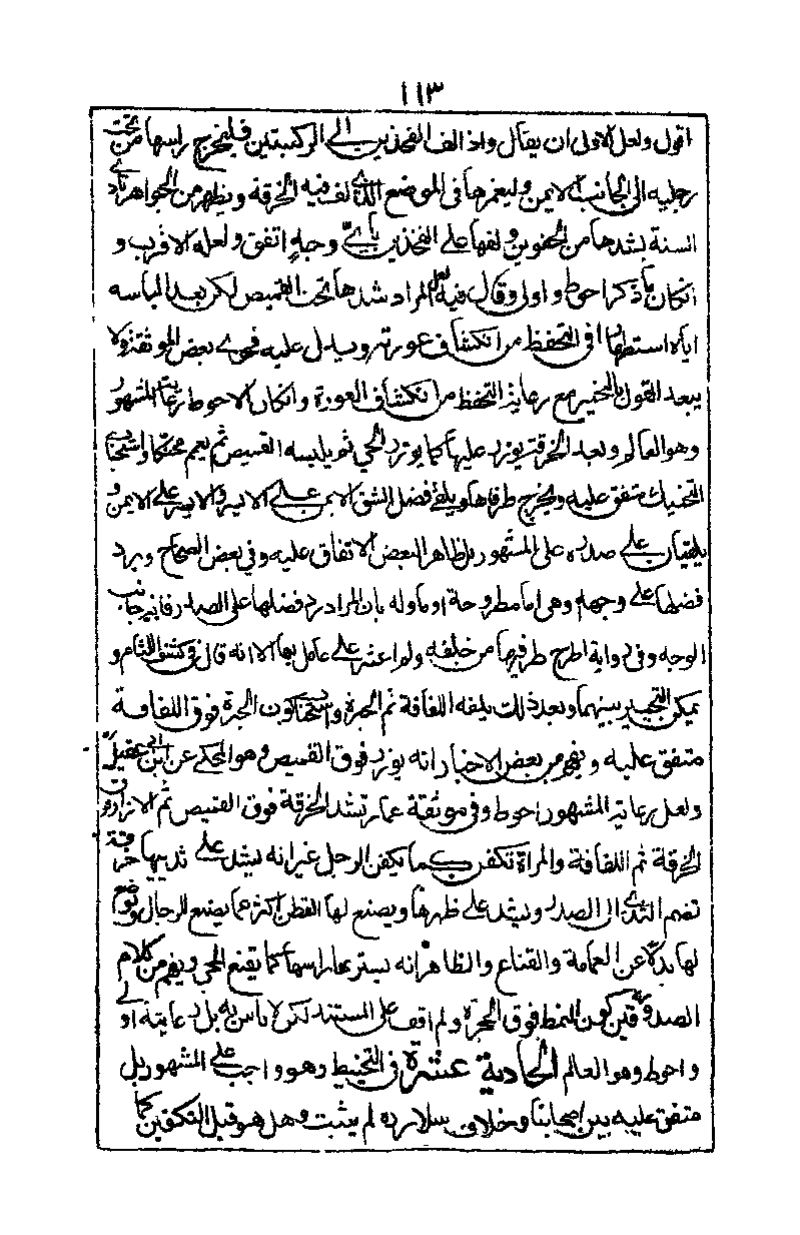 ١١٣
اقول ولعل الاولى ان يقال واذا لف الفخذين الى الركبتين فليخرج راسها من تحت
رجليه الى الجانب الايمن وليغمزها في الموضع الذي لف فيه الخرقة ويظهر من الجواهر تادي
السنة بشدها من الحقوين ولفها على الفخذين باي وجه اتفق ولعله الاقرب و
انكان ما ذكر احوط واولى وقال فيه المراد شدها تحت القميص لكن بعد الباسه
اياه استظهارا في التحفظ من انكشاف عورته ويدل عليه فحوى بعض الموثقة ولا
يبعد القول بالتخيير مع رعاية التحفظ من انكشاف العورة وانكان الاحوط رعاية المشهور
وهو العالم وبعد الخرقة يوزر عليها كما يوتزر الحي ثم يلبسه القميص ثم يعمم محنكا واستحباب
التحنيك متفق عليه ويخرج طرفاها ويلقى فضل الشق الايمن على الايسر والايسر على الايمن و
يلقيان على صدره على المشهور بل ظاهر البعض الاتفاق عليه وفي بعض الصحاح ويرد
فضلها على وجهه وهي اما مطروحة او ماوله بان المراد رد فضلها على الصدر فانه جانب
الوجه وفي رواية اطرح طرفيها من خلفه ولم اعثر على عامل بها الا انه قال في كشف اللثام و
يمكن التخيير بينهما وبعد ذلك يلفه اللفافة ثم الحبرة واستحباب كون الحبرة فوق اللفافة
متفق عليه ويفهم من بعض الاخبار انه يوزر فوق القميص وهو المحكي عن ابن ابي عقيل
ولعل رعاية المشهور احوط وفي موثقة عمار تشد الخرقة فوق القميص ثم الازار فوق
الخرقة ثم اللفافة والمراة تكفن كما يكفن الرجل غير انه يشد على ثدييها خرقة
تضم الثدي الى الصدر ويشد على ظهرها ويصنع لها القطن اكثر مما يصنع للرجال ويوضع
لها بدلا عن العمامة والقناع والظاهر انه يستر بها راسها كما يقنع الحي ويفهم من كلام
الصدوقين كون النمط فوق الحبرة ولم اقف على المستند لكن لا باس به بل رعايته اولى
واحوط وهو العالم الحادية عشرة في التحنيط وهو واجب على المشهور بل
متفق عليه بين اصحابنا وخلاف سلار ره لم يثبت وهل هو قبل التكفين كما